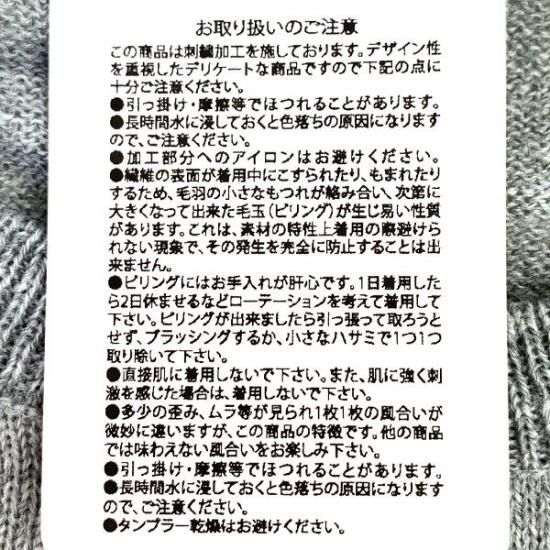 お取り扱いのご注意
この商品は刺繍加工を施しております。デザイン性
を重視したデリケートな商品ですので下記の点に
十分ご注意ください。
●引っ掛け・摩擦等でほつれることがあります。
●長時間水に浸しておくと色落ちの原因になります
ので、ご注意ください。
●加工部分へのアイロンはお避けください。
●繊維の表面が着用中にこすられたり、もまれたり
するため、毛羽の小さなもつれが絡み合い、次第に
大きくなって出来た毛玉(ピリング)が生じ易い性質
があります。これは、素材の特性上着用の際避けら
れない現象で、その発生を完全に防止することは出
来ません。
●ピリングにはお手入れが肝心です。1日着用した
ら2日休ませるなどローテーションを考えて着用して
下さい。ピリングが出来ましたら引っ張って取ろうと
せず、ブラッシングするか、小さなハサミで1つ1つ
取り除いて下さい。
●直接肌に着用しないで下さい。また、肌に強く刺
激を感じた場合は、着用しないで下さい。
●多少の歪み、ムラ等が見られ1枚1枚の風合いが
微妙に違いますが、この商品の特徴です。他の商品
では味わえない風合いをお楽しみ下さい。
●引っ掛け・摩擦等でほつれることがあります。
●長時間水に浸しておくと色落ちの原因になりますので、
ご注意ください。
●タンブラー乾燥はお避けください。